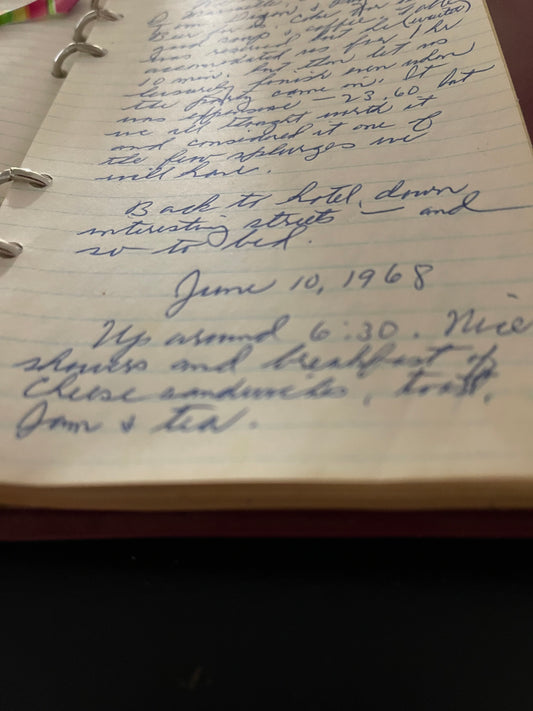 good soup & coffee. Table
was reserved but he (waiter)
accomodated us for 1 hr
10 min. but then let us
leisurely finish even when
the party came in. It
was expensive — 23.60 but
we all thought worth it
and considered it one of
the few splurges we
will have.
Back to hotel, down
interesting streets — and
so to bed.
June 10, 1968
Up around 6:30. Nice
showers and breakfast of
cheese sandwiches, toast,
Jam & tea.